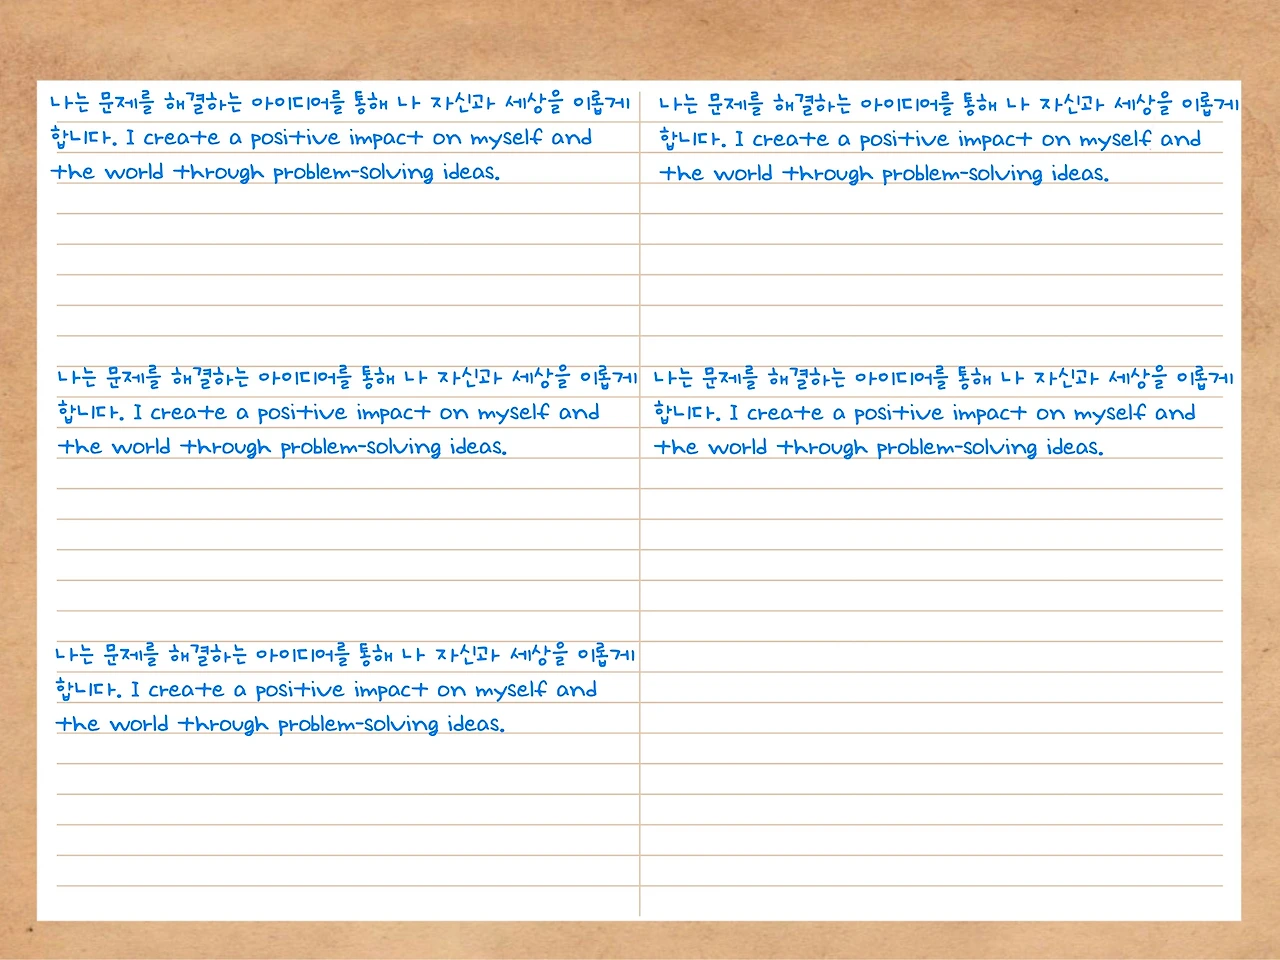 나는 문제를 해결하는 아이디어를 통해 나 자신과 세상을 이롭게
합니다. I create a positive impact on myself and
the world through problem-solving ideas.
나는 문제를 해결하는 아이디어를 통해 나 자신과 세상을 이롭게
합니다. I create a positive impact on myself and
the world through problem-solving ideas.
나는 문제를 해결하는 아이디어를 통해 나 자신과 세상을 이롭게
합니다. I create a positive impact on myself and
the world through problem-solving ideas.
나는 문제를 해결하는 아이디어를 통해 나 자신과 세상을 이롭게
합니다. I create a positive impact on myself and
the world through problem-solving ideas.
나는 문제를 해결하는 아이디어를 통해 나 자신과 세상을 이롭게
합니다. I create a positive impact on myself and
the world through problem-solving ideas.